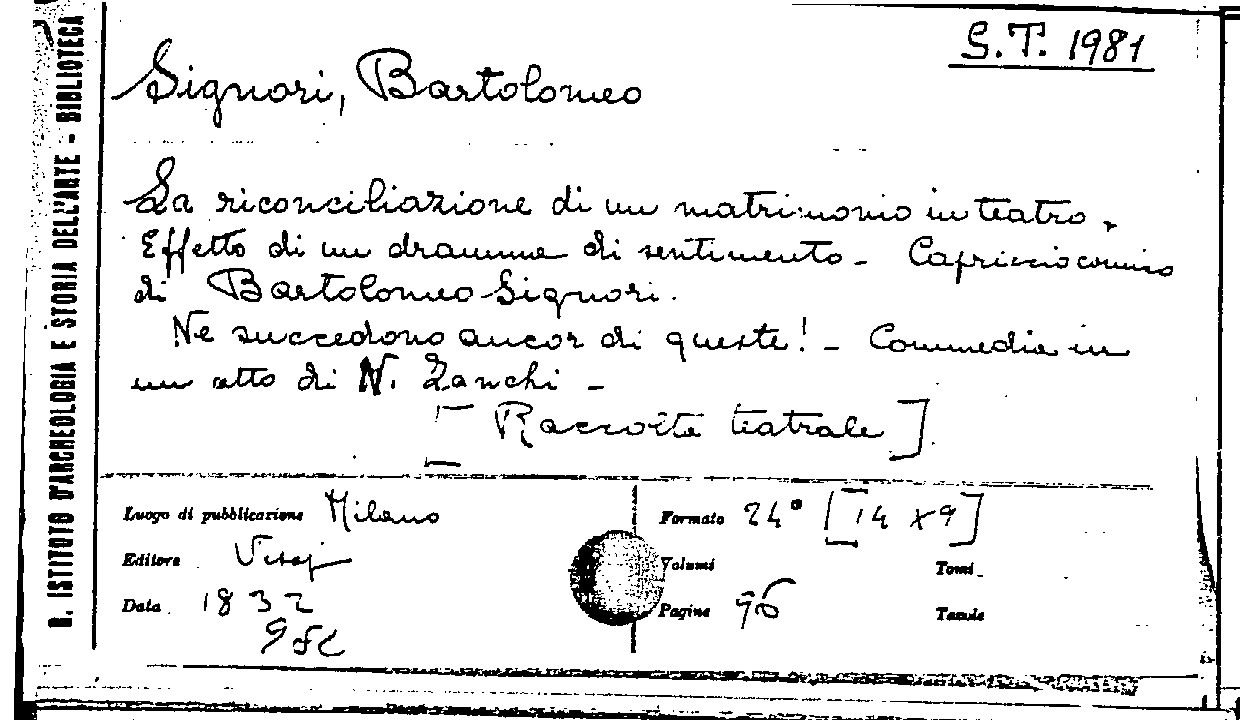 R. ISTITUTO D'ARCHEOLOGIA E STORIA DELL'ARTE - BIBLIOTECA
S.T. 1981
Signori, Bartolomeo
La riconciliazione di un matrimonio in teatro.
Effetto di un dramma di sentimento - Capriccio comico
di Bartolomeo Signori.
Ne succedono ancor di queste! - Commedia in
un atto di N. Zanchi -
[Raccolte teatrale]
Luogo di pubblicazione Milano
Formato 24° [14 x 9]
Editore Visaj
Volumi
Tomi
Data 1832
Pagine 96
Tavole